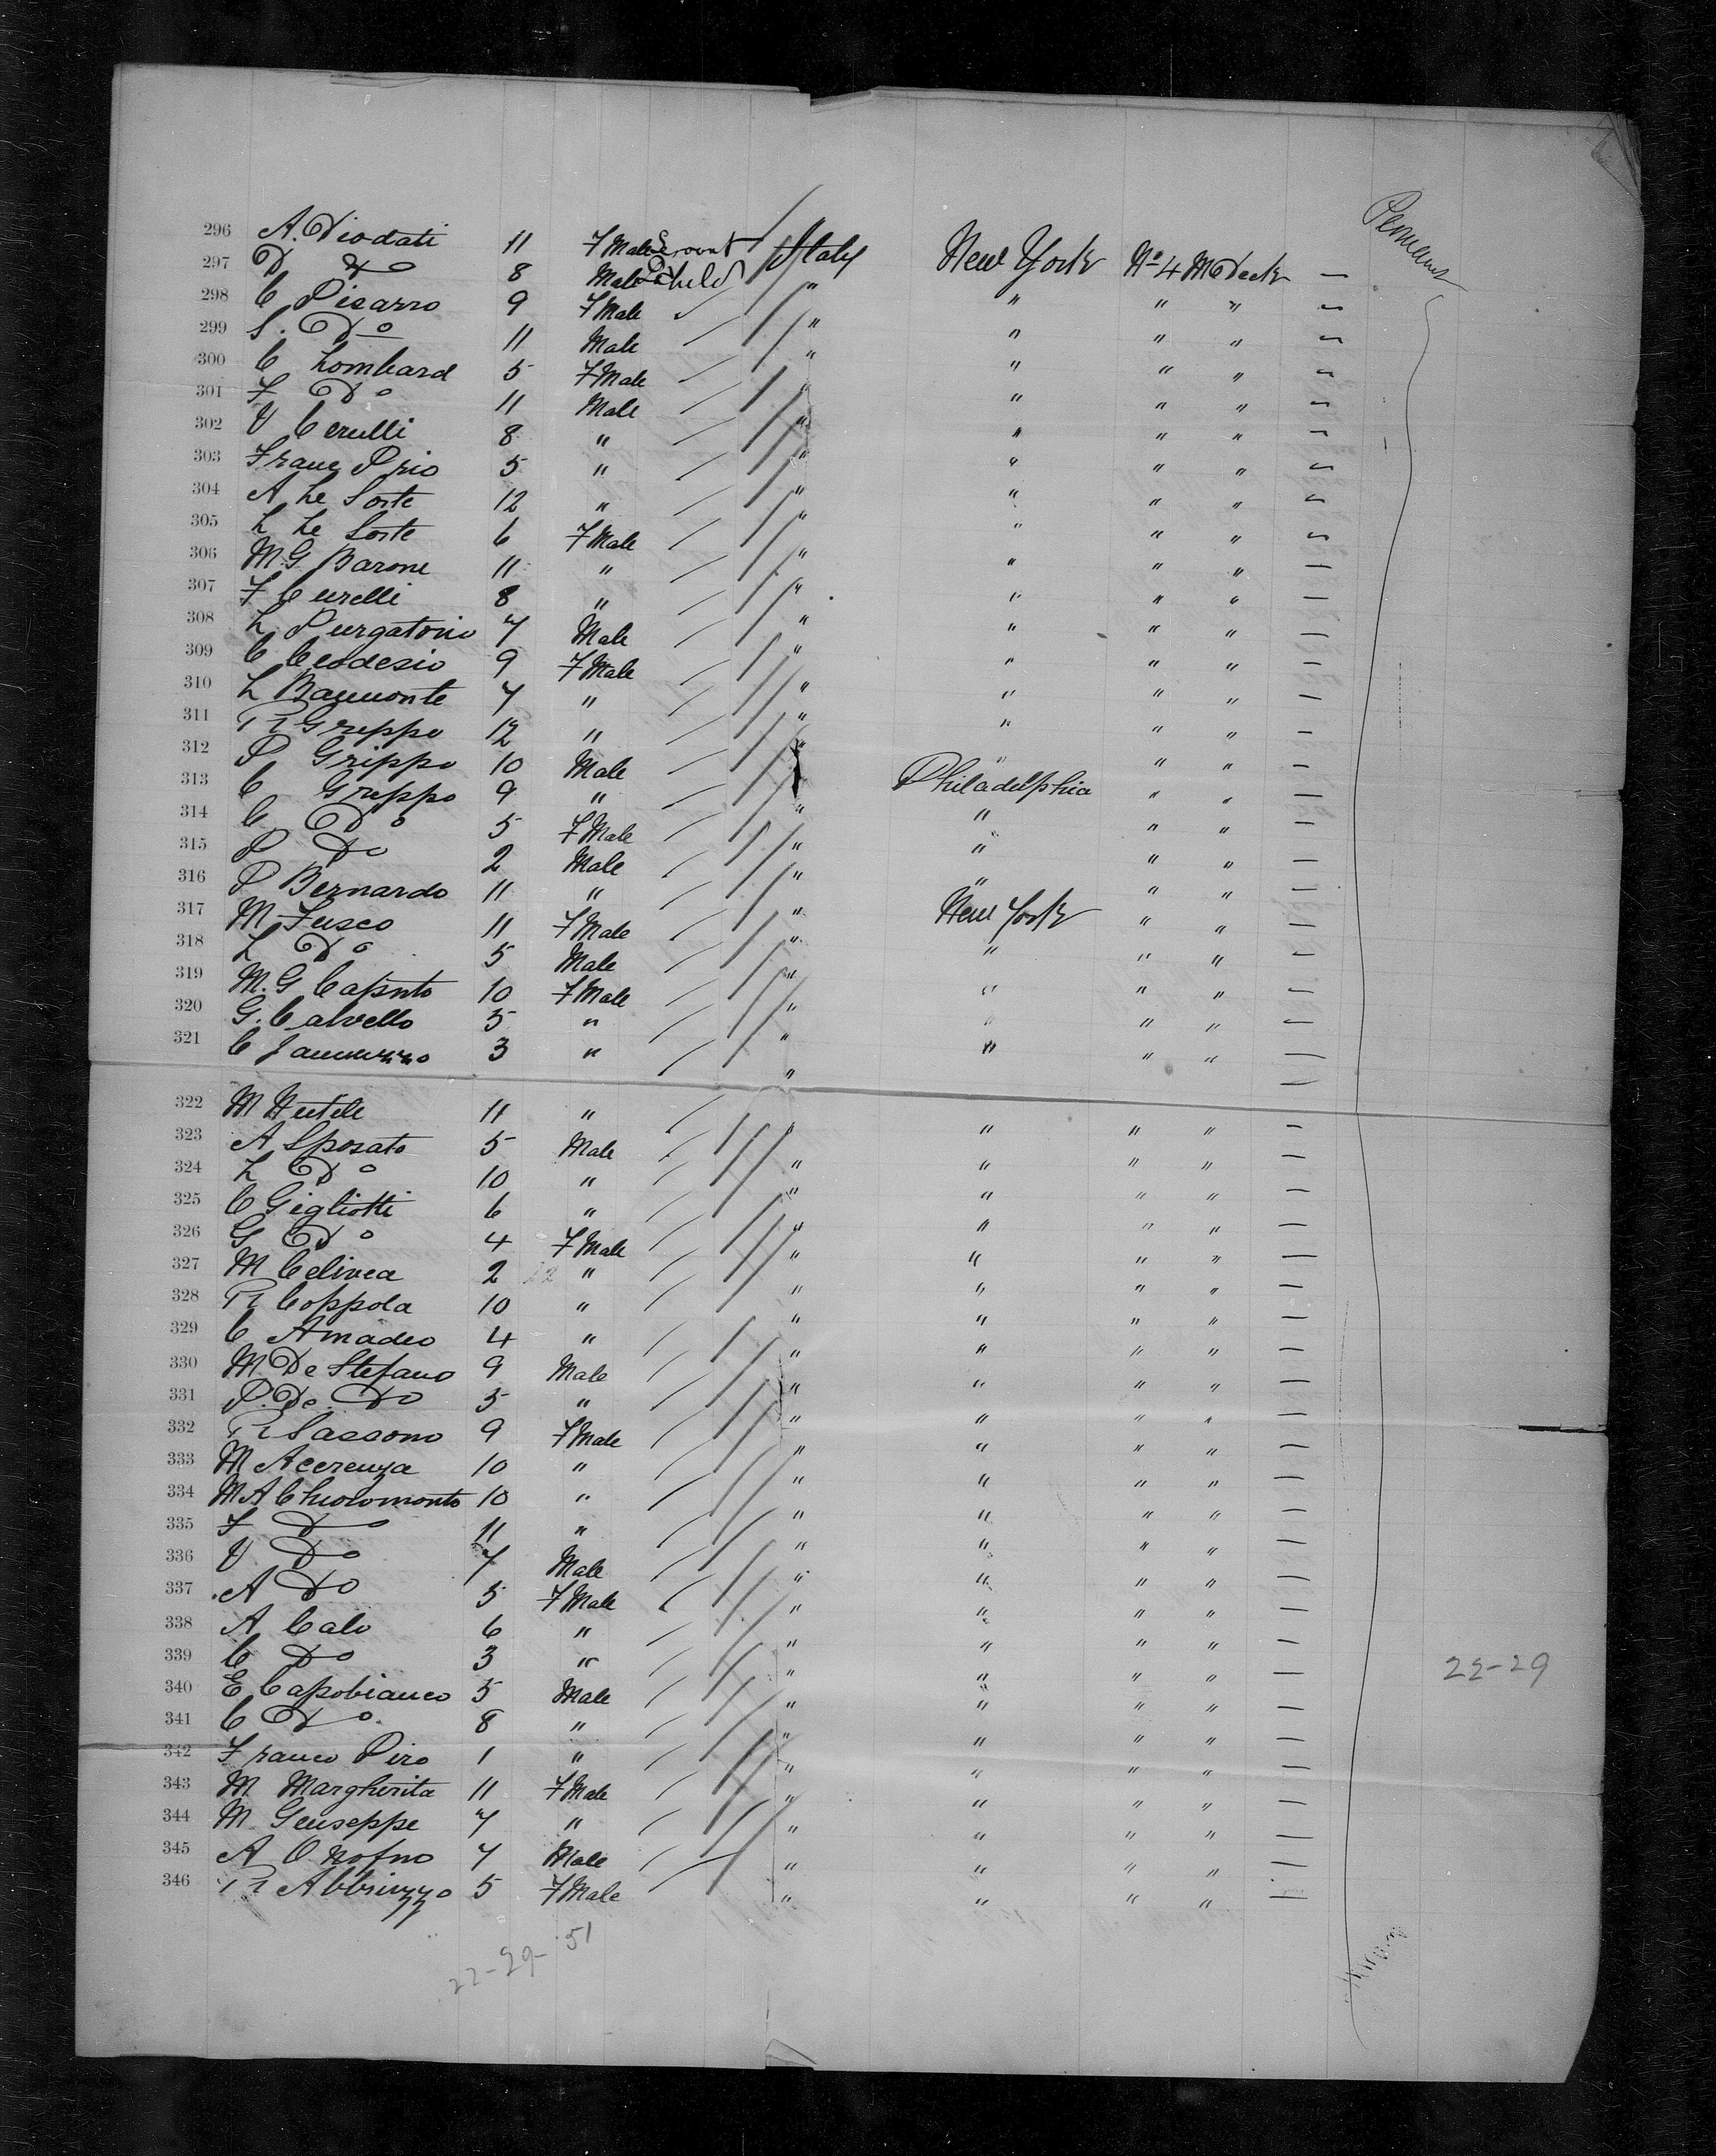 Permanent
296 A. Diodati 11 FMale Servant Italy New York No 4 MDeck —
297 D Do 8 Male Child " " " " —
298 C Pisarro 9 FMale " " " " —
299 S. Do 11 Male " " " " —
300 C Lombard 5 FMale " " " " —
301 F Do 11 Male " " " " —
302 V Cerulli 8 " " " " " —
303 Franc Prio 5 " " " " " —
304 A Le Sorte 12 " " " " " —
305 L Le Sorte 6 FMale " " " " —
306 M.G Barone 11 " " " " " —
307 F Curelli 8 " " " " " —
308 L. Purgatorio 7 Male " " " " —
309 C Ceodesio 9 FMale " " " " —
310 L Bamonte 7 " " " " " —
311 R Greppo 12 " " " " " —
312 P Grippo 10 Male " " " " —
313 C Greppo 9 " " Philadelphia " " —
314 C Do 5 FMale " " " " —
315 P Do 2 Male " " " " —
316 P Bernardo 11 " " " " " —
317 M Fusco 11 FMale " New York " " —
318 L Do 5 Male " " " " —
319 M.G Caputo 10 FMale " " " " —
320 G. Calvello 5 " " " " " —
321 C Jannuzzo 3 " " " " " —
322 M 11 " " " " " —
323 A Sposato 5 Male " " " " —
324 L Do 10 " " " " " —
325 C Gigliotti 6 " " " " " —
326 G Do 4 FMale " " " " —
327 M Celivea 2 " " " " " —
328 R Coppola 10 " " " " " —
329 C Amadeo 4 " " " " " —
330 M De Stefano 9 Male " " " " —
331 P. De. Do 5 " " " " " —
332 R Sassono 9 FMale " " " " —
333 M Acerenza 10 " " " " " —
334 M A Chioromonto 10 " " " " " —
335 F Do 11 " " " " " —
336 V Do 7 Male " " " " —
337 A Do 5 FMale " " " " —
338 A Calo 6 " " " " " —
339 C Do 3 " " " " " —
22-29
340 E Capobianco 5 Male " " " " —
341 C Do. 8 " " " " " —
342 Franco Piro 1 " " " " " —
343 M Margherita 11 FMale " " " " —
344 M Geuseppe 7 " " " " " —
345 A Onofno 7 Male " " " " —
346 R Abbruzzo 5 FMale " " " " —
22-29-51